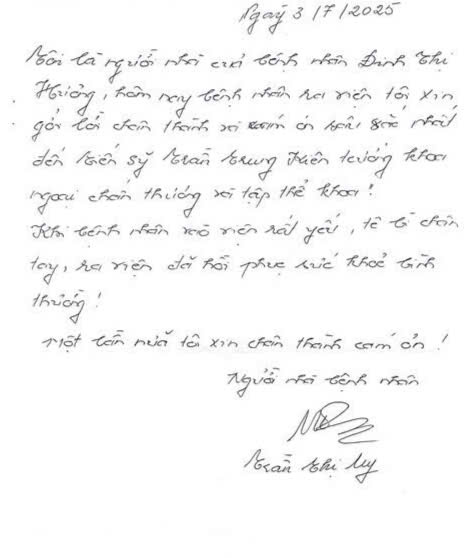 Ngày 3/7/2025
Tôi là người nhà của bệnh nhân Đinh Thị
Hường, hôm nay bệnh nhân ra viện tôi xin
gởi lời chân thành và cảm ơn sâu sắc nhất
đến tiến sỹ Trần Trung Kiên trưởng khoa
ngoại chấn thương và tập thể khoa!
Khi bệnh nhân vào viện rất yếu, tê bì chân
tay, ra viện đã hồi phục sức khoẻ bình
thường!
Một lần nữa tôi xin chân thành cảm ơn!
Người nhà bệnh nhân
Trần Thị My